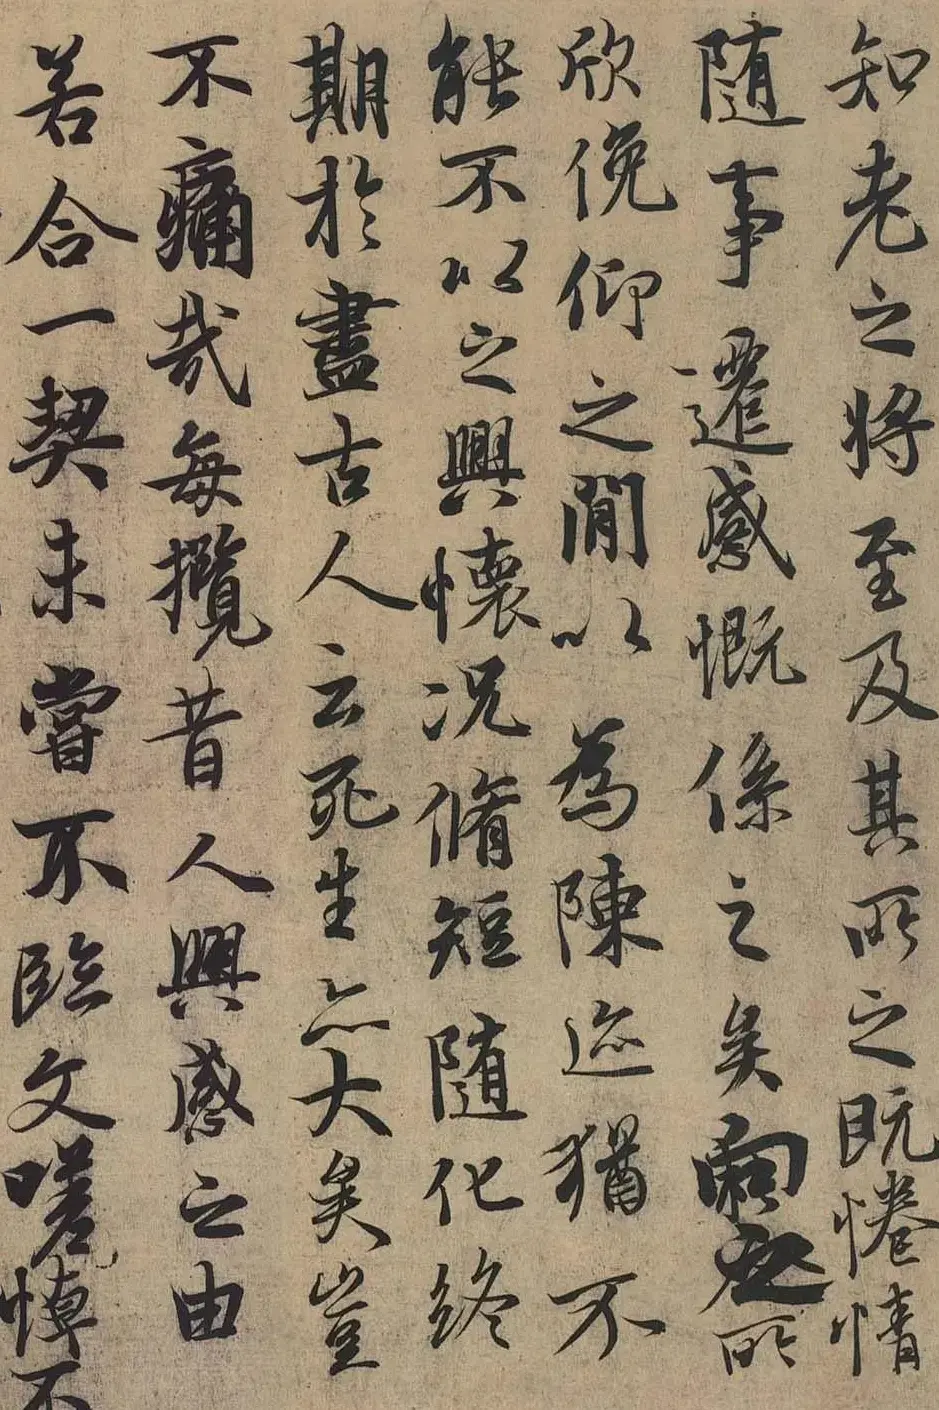 知老之將至及其所之既惓情
隨事遷感慨係之矣向之所
欣俛仰之閒以為陳迹猶不
能不以之興懷況脩短隨化終
期於盡古人云死生亦大矣豈
不痛哉每攬昔人興感之由
若合一契未嘗不臨文嗟悼不